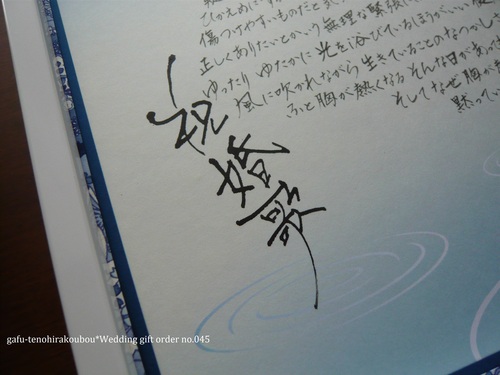 傷つけやすいものだと気
正しくありたいとかいう無理な緊張に
ゆったり ゆたかに 光を浴びているほうがいい
風に吹かれながら 生きていることのなつかし
ふと胸が熱くなる そんな日があっ
そして なぜ胸が
黙ってい
祝婚歌
gafu-tenohirakoubou*Wedding gift order no.045